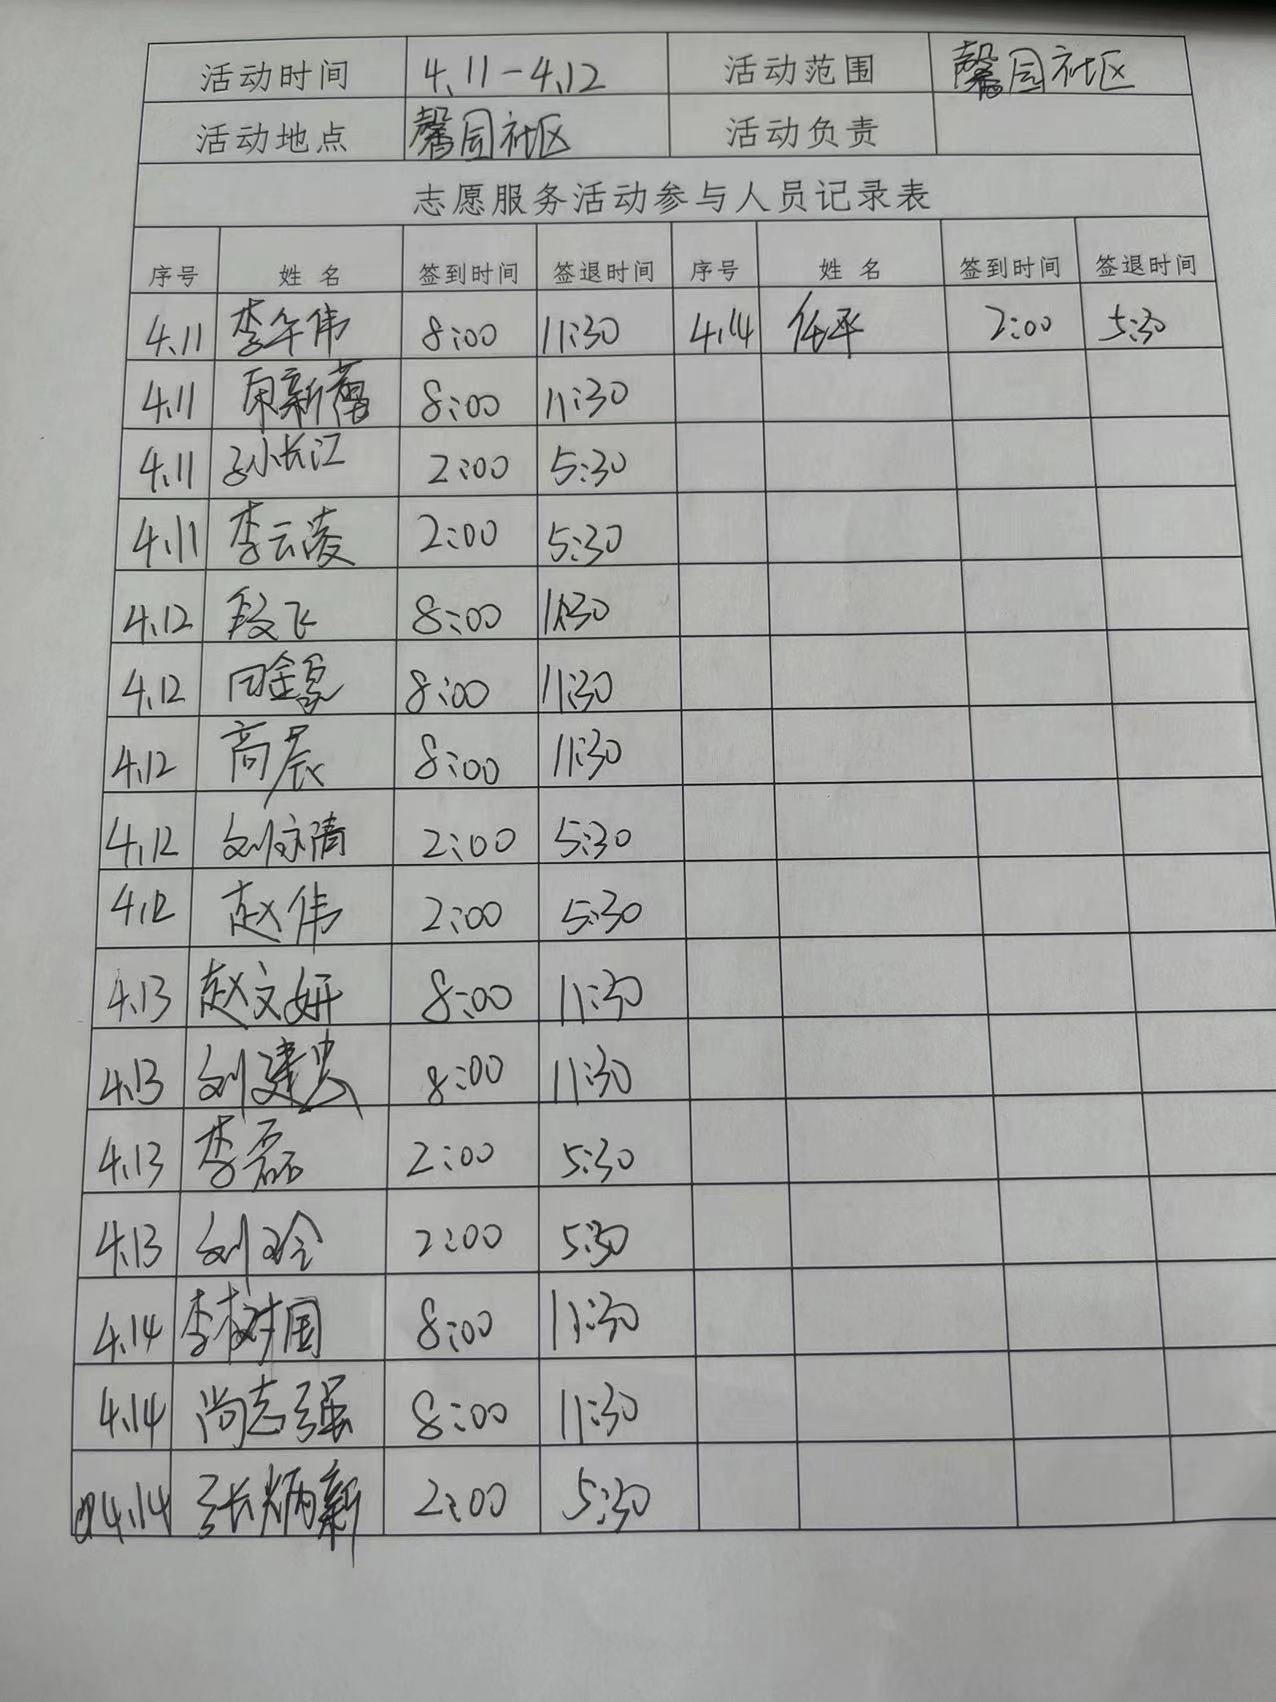 活动时间 4.11-4.12 活动范围 馨园社区
活动地点 馨园社区 活动负责
志愿服务活动参与人员记录表
序号 姓名 签到时间 签退时间 序号 姓名 签到时间 签退时间
4.11 李午伟 8:00 11:30 4.14 任平 2:00 5:30
4.11 8:00 11:30
4.11 孙长江 2:00 5:30
4.11 李云凌 2:00 5:30
4.12 段飞 8:00 11:30
4.12 8:00 11:30
4.12 高晨 8:00 11:30
4.12 刘永清 2:00 5:30
4.12 赵伟 2:00 5:30
4.13 赵文妍 8:00 11:30
4.13 刘建忠 8:00 11:30
4.13 李磊 2:00 5:30
4.13 刘玲 2:00 5:30
4.14 李树国 8:00 11:30
4.14 尚志强 8:00 11:30
4.14 张炳新 2:00 5:30